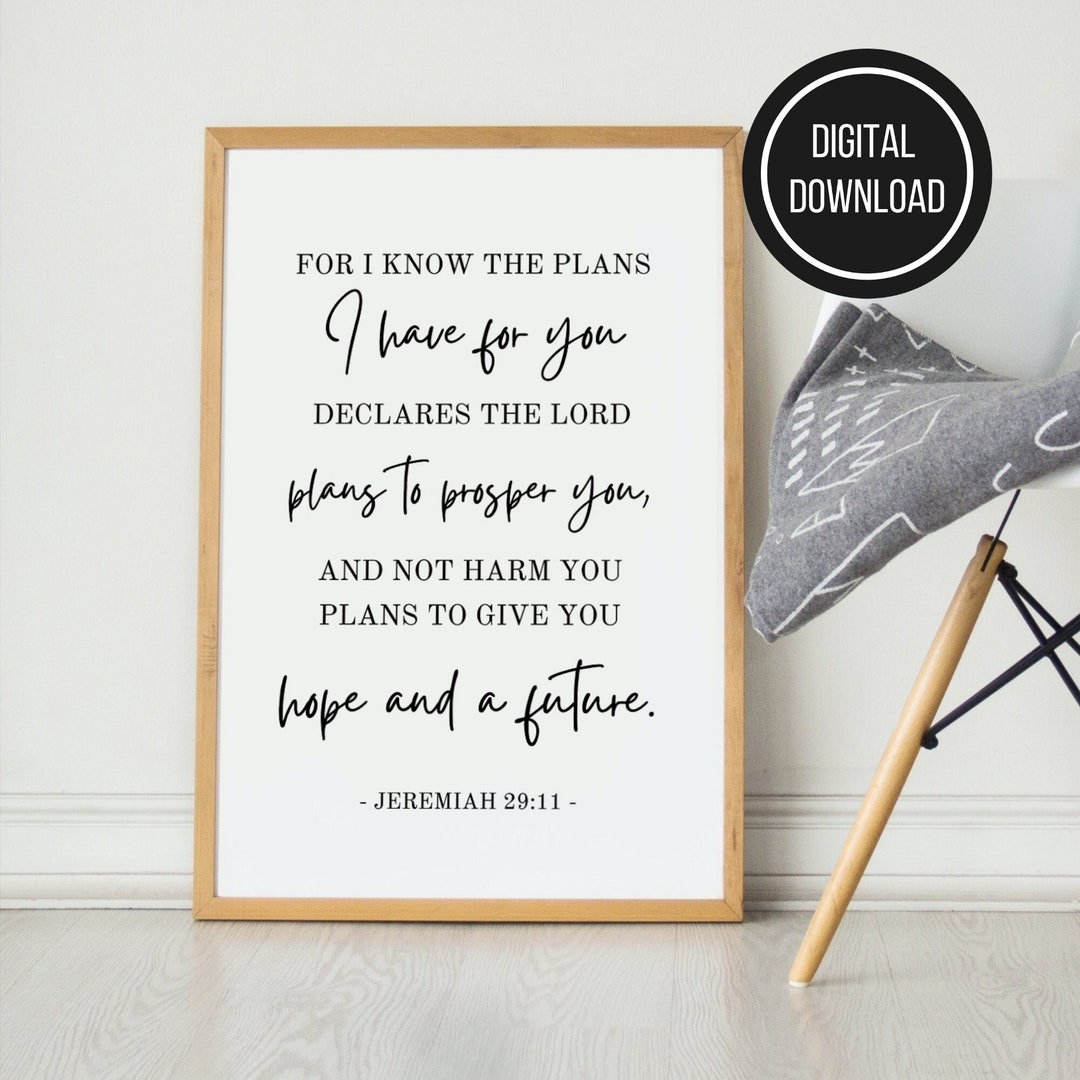 DIGITAL
DOWNLOAD
FOR I KNOW THE PLANS
I have for you
DECLARES THE LORD
plans to prosper you,
AND NOT HARM YOU
PLANS TO GIVE YOU
hope and a future.
- JEREMIAH 29:11 -